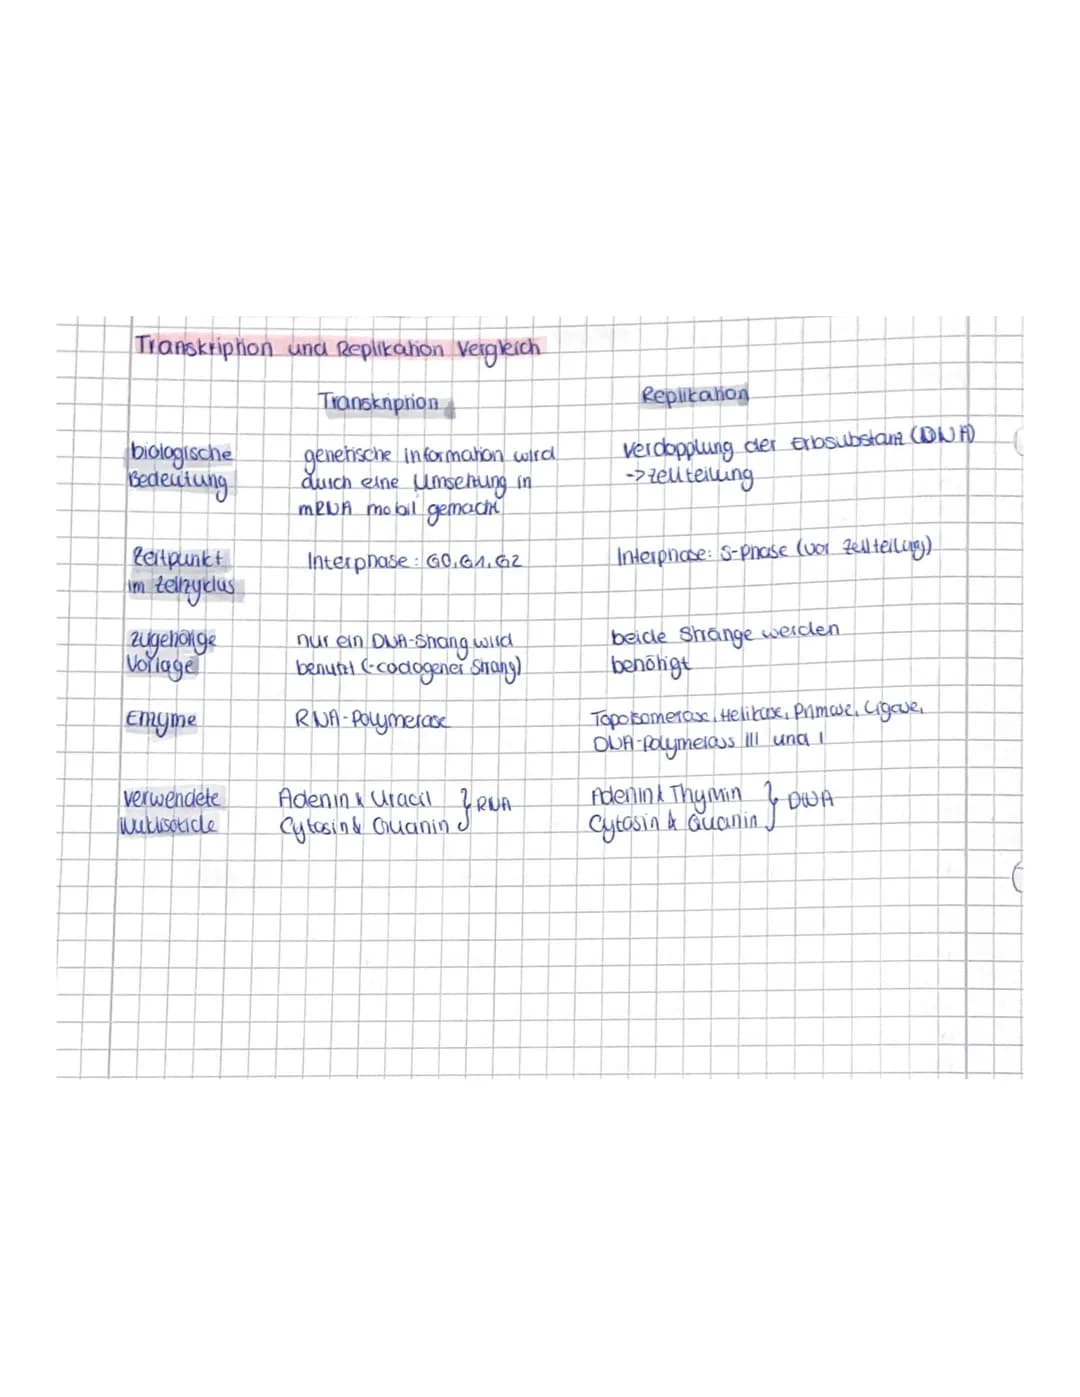 Transkription und Replikation Vergleich
Transkription
Replikation
biologische
Bedeutung
genetische Information wird
durch eine Umsetzung in
mRNA mobil gemacht
Verdopplung der Erbsubstanz (DNA)
-> Zellteilung
Zeitpunkt
im Zellzyklus
Interphase: G0, G1, G2
Interphase: S-Phase (vor Zellteilung)
zugehörige
Vorlage
nur ein DNA-Strang wird
benutzt (-codogener Strang)
beide Stränge werden
benötigt
Enzyme
RNA-Polymerase
Topoisomerase, Helikase, Primase, Ligase,
DNA-Polymerass III und I
verwendete
Nuklisotide
Adenin & Uracil
Cytosin & Guanin } RNA
Adenin & Thymin
Cytosin & Guanin } DNA